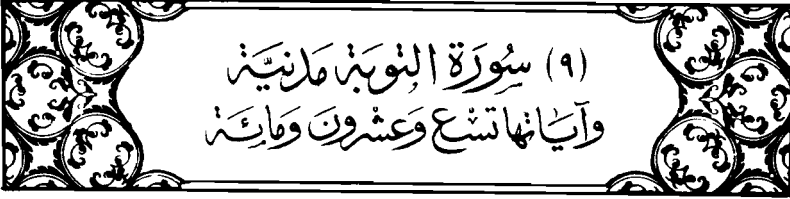 (٩) سُورَة التوبَة مَدَنيَّة
وآيَاتها تسْع وَعشْرونَ وَمائِة